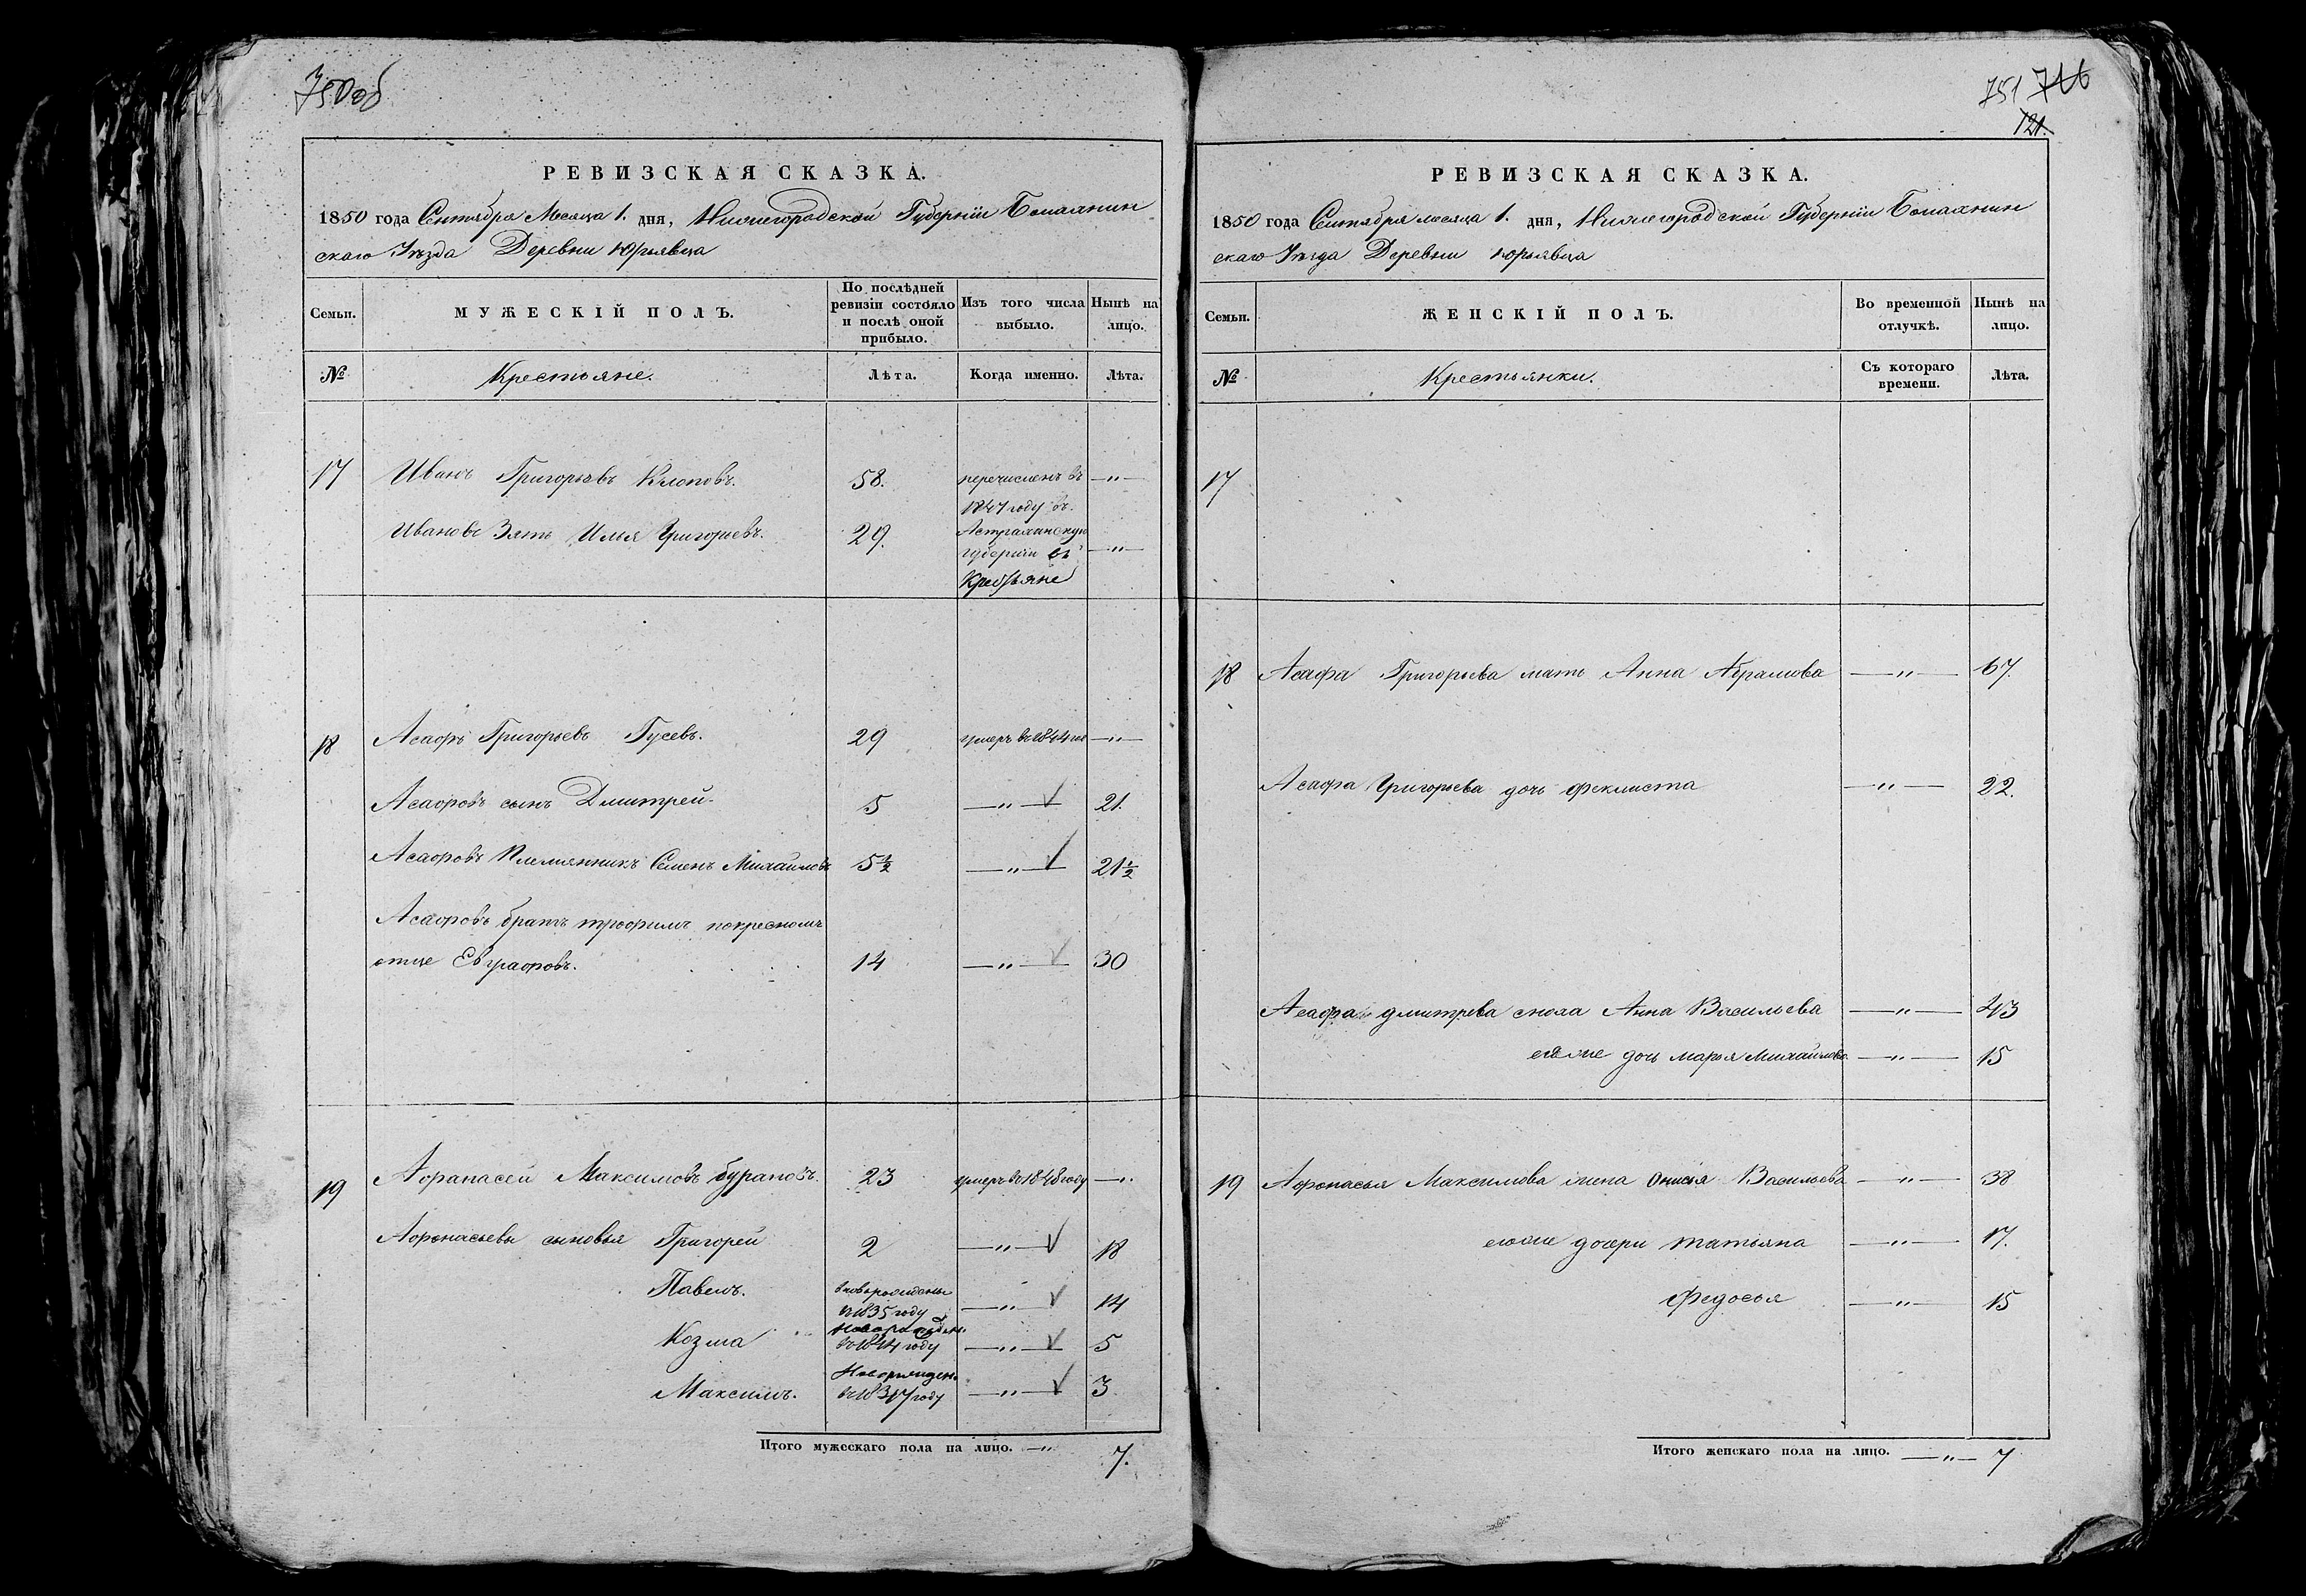 750об
РЕВИЗСКАЯ СКАЗКА.
1850 года Сентября Месяца 1. дня, Нижегородской Губернiи Балахнин
скаго Уѣзда Деревни Юрьявца
Семьи.
МУЖЕСКІЙ ПОЛЪ.
По послѣдней
ревизіи состояло
и послѣ оной
прибыло.
Изъ того числа
выбыло.
Нынѣ на
лицо.
№
Крестьяне.
Лѣта.
Когда именно.
Лѣта.
17 Иванъ Григорьевъ Клоповъ. 58. перечисленъ въ —"—
1847 году въ
Ивановъ Зять Илья Григорьевъ. 29. Астраханскую
губернiи въ —"—
Крестьяне
18 Асафъ Григорьевъ Гусевъ. 29 умеръ въ 1844 го —"—
Асафовъ сынъ Дмитрей. 5 —"— 21.
Асафовъ племянникъ Семенъ Михайловъ 5½ —"— 21½
Асафовъ братъ трофимъ покресномъ
отце Евграфовъ. 14 —"— 30
19 Афанасей Максимовъ бурановъ. 23 умеръ въ 1848 году —"—
Афонасьевы сыновья Григорей 2 —"— 18
Павелъ. вновьрожденъ
въ 1835 году —"— 14
Козма Новорожден.
въ 1844 году —"— 5
Максимъ. Новорожден.
въ 1847 году —"— 3
Итого мужескаго пола на лицо. —"— 7.
751 746
121.
РЕВИЗСКАЯ СКАЗКА.
1850 года Сентября месяца 1. дня, Нижегородской Губернiи Балахнин
скаго Уѣзда Деревни юрьявца
Семьи.
ЖЕНСКІЙ ПОЛЪ.
Во временной
отлучкѣ.
Нынѣ на
лицо.
№
Крестьянки.
Съ котораго
времени.
Лѣта.
17
18 Асафа Григорьева мать Анна Абрамова —"— 67.
Асафа Григорьева дочь феклиста —"— 22.
Асафа дмитрева сноха Анна Васильева —"— 43
ея же дочь марья Михайлова —"— 15
19 Афонасья Максимова жена Онисiя Васильева —"— 38
его же дочери татьяна —"— 17.
Федосья —"— 15
Итого женскаго пола на лицо. —"— 7